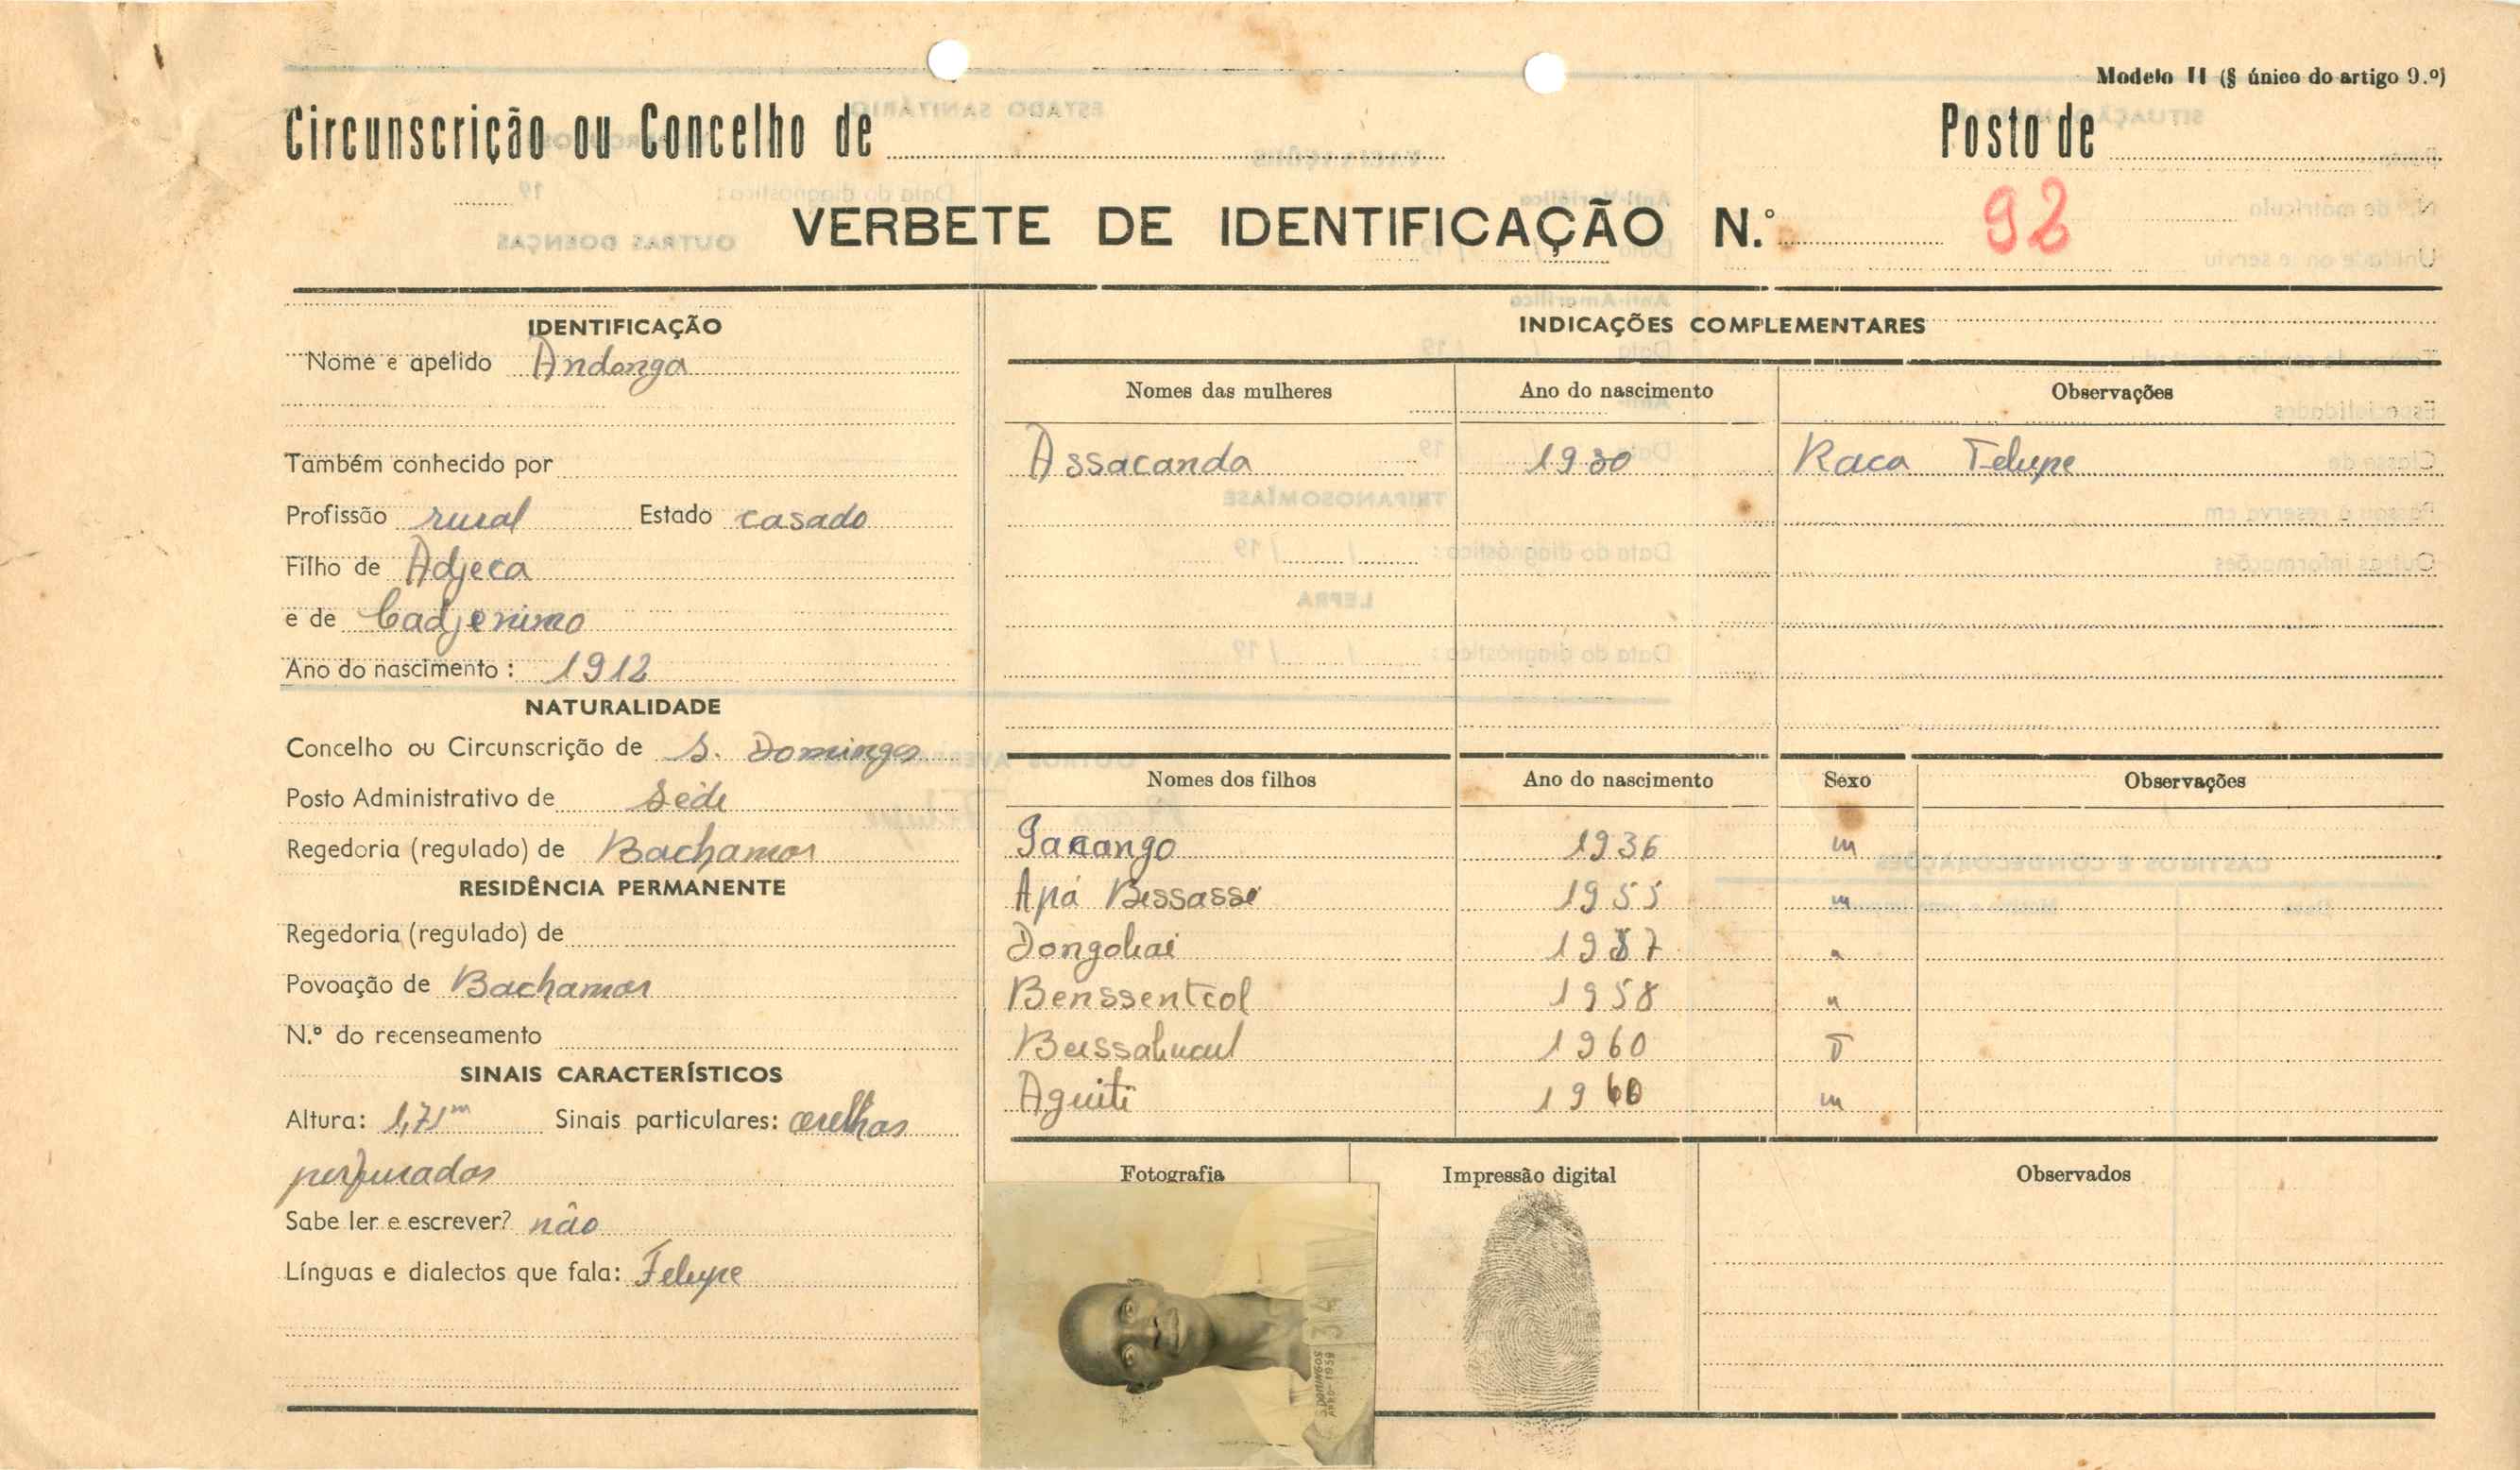 Modelo II (§ único do artigo 9.º)
Circunscrição ou Concelho de
Posto de
VERBETE DE IDENTIFICAÇÃO N.º 92
IDENTIFICAÇÃO
Nome e apelido Andonga
Também conhecido por
Profissão rural Estado casado
Filho de Adjeca
e de Cadjenimo
Ano do nascimento: 1912
NATURALIDADE
Concelho ou Circunscrição de S. Domingos
Posto Administrativo de Sede
Regedoria (regulado) de Bachamor
RESIDÊNCIA PERMANENTE
Regedoria (regulado) de
Povoação de Bachamor
N.º do recenseamento
SINAIS CARACTERÍSTICOS
Altura: 1,71m Sinais particulares: orelhas
perfuradas
Sabe ler e escrever? não
Línguas e dialectos que fala: Felupe
INDICAÇÕES COMPLEMENTARES
Nomes das mulheres Ano do nascimento Observações
Assacanda 1930 Raca Felupe
Nomes dos filhos Ano do nascimento Sexo Observações
1936 m
Apá Bessasse 1955 m
1957 "
Benssentcol 1958 "
1960 F
Aguiti 1960 m
Fotografia Impressão digital Observados
S. DOMINGOS
1959